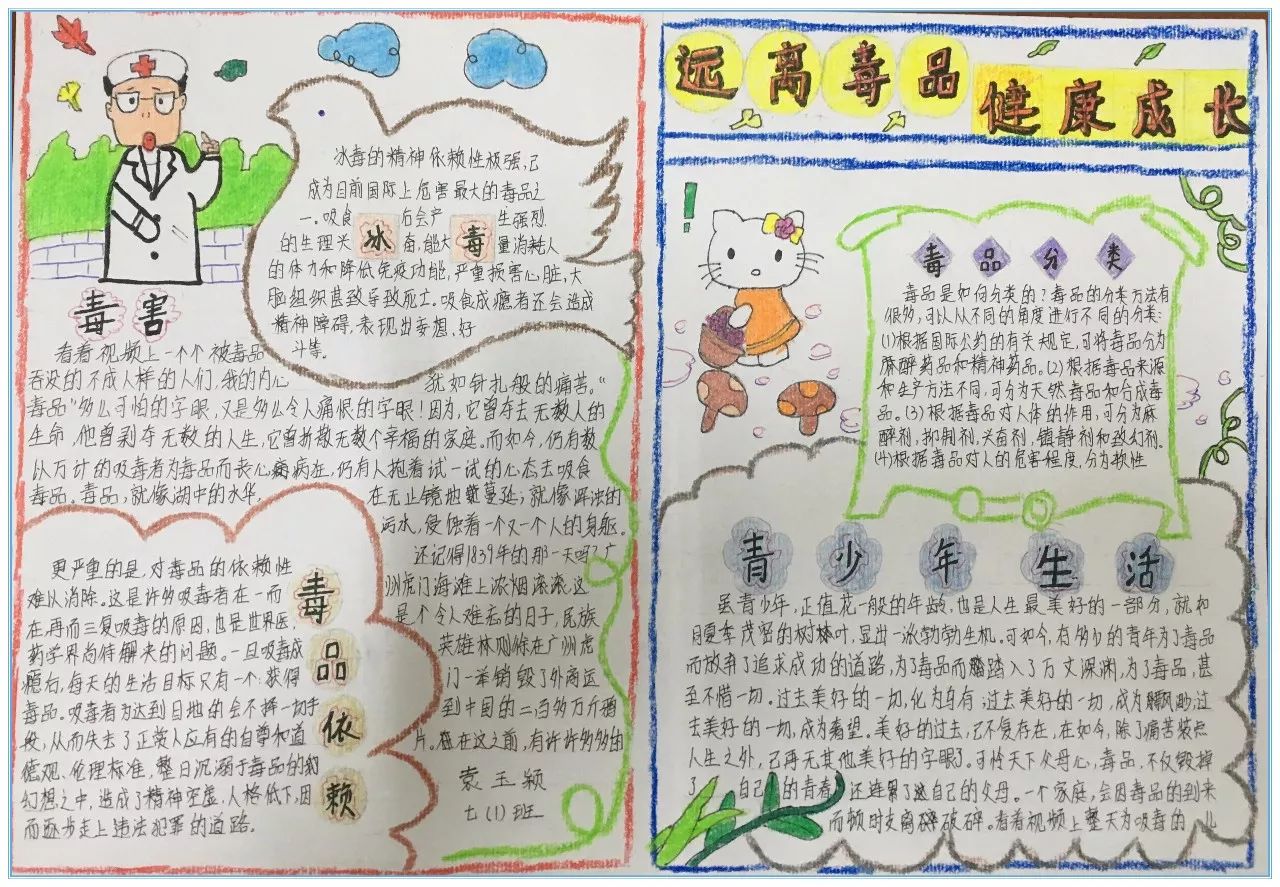 冰毒的精神依赖性极强,已
成为目前国际上危害最大的毒品之
一.吸食冰毒后会产生强烈
的生理兴奋,能大量消耗人
的体力和降低免疫功能,严重损害心脏,大
脑组织甚致导致死亡.吸食成瘾者还会造成
精神障碍.表现出妄想.好
斗等.
毒害
看看视频上一个个被毒品
吞没的不成人样的人们,我的内心
犹如针扎般的痛苦."
毒品"多么可怕的字眼,又是多么令人痛恨的字眼!因为,它曾夺去无数人的
生命,他曾剥夺无数的人生,它曾拆散无数个幸福的家庭.而如今,仍有数
以万计的吸毒者为毒品而丧心病在,仍有人抱着试一试的心态去吸食
毒品。毒品,就像湖中的水华,在无止镜地蔓延;就像浑浊的
污水,侵蚀着一个又一个人的身躯.
还记得1839年的那一天吗?广
州虎门海滩上浓烟滚滚,这
是个令人难忘的日子,民族
英雄林则徐在广州虎
门一举销毁了外商运
到中国的二百多万斤鸦
片。在这之前,有许许多多的
袁玉颖
七(1)班
毒品依赖
更严重的是,对毒品的依赖性
难以消除。这是许多吸毒者在一而
在再而三复吸毒的原因,也是世界医
药学界尚待解决的问题。一旦吸毒成
瘾后,每天的生活目标只有一个:获得
毒品。吸毒者为达到目地的会不择一切手
段,从而失去了正常人应有的自尊和道
德观、伦理标准,整日沉溺于毒品的
幻想之中,造成了精神空虚,人格低下,因
而逐步走上违法犯罪的道路。
远离毒品
健康成长
毒品分类
毒品是如何分类的?毒品的分类方法有
很多,可以从不同的角度进行不同的分类:
(1)根据国际公约的有关规定,可将毒品分为
麻醉药品和精神药品。(2)根据毒品来源
和生产方法不同,可分为天然毒品和合成毒
品。(3)根据毒品对人体的作用,可分为麻
醉剂,抑制剂,兴奋剂,镇静剂和致幻剂.
(4)根据毒品对人的危害程度,分为软性
青少年生活
虽青少年,正值花一般的年龄,也是人生最美好的一部分,就和
夏季茂密的树叶,显出一派勃勃生机。可如今,有多少的青年为了毒品
而放弃了追求成功的道路,为了毒品而踏入了万丈深渊,为了毒品,甚
至不惜一切。过去美好的一切,化为乌有;过去美好的一切,成为飘渺;过
去美好的一切,成为奢望。美好的过去,已不复存在,在如今,除了痛苦装点
人生之外,已再无其他美好的字眼了。可怜天下父母心,毒品,不仅毁掉
了自己的青春,还连累了自己的父母。一个家庭,会因毒品的到来
而顿时支离破碎。看看视频上整天为吸毒的儿